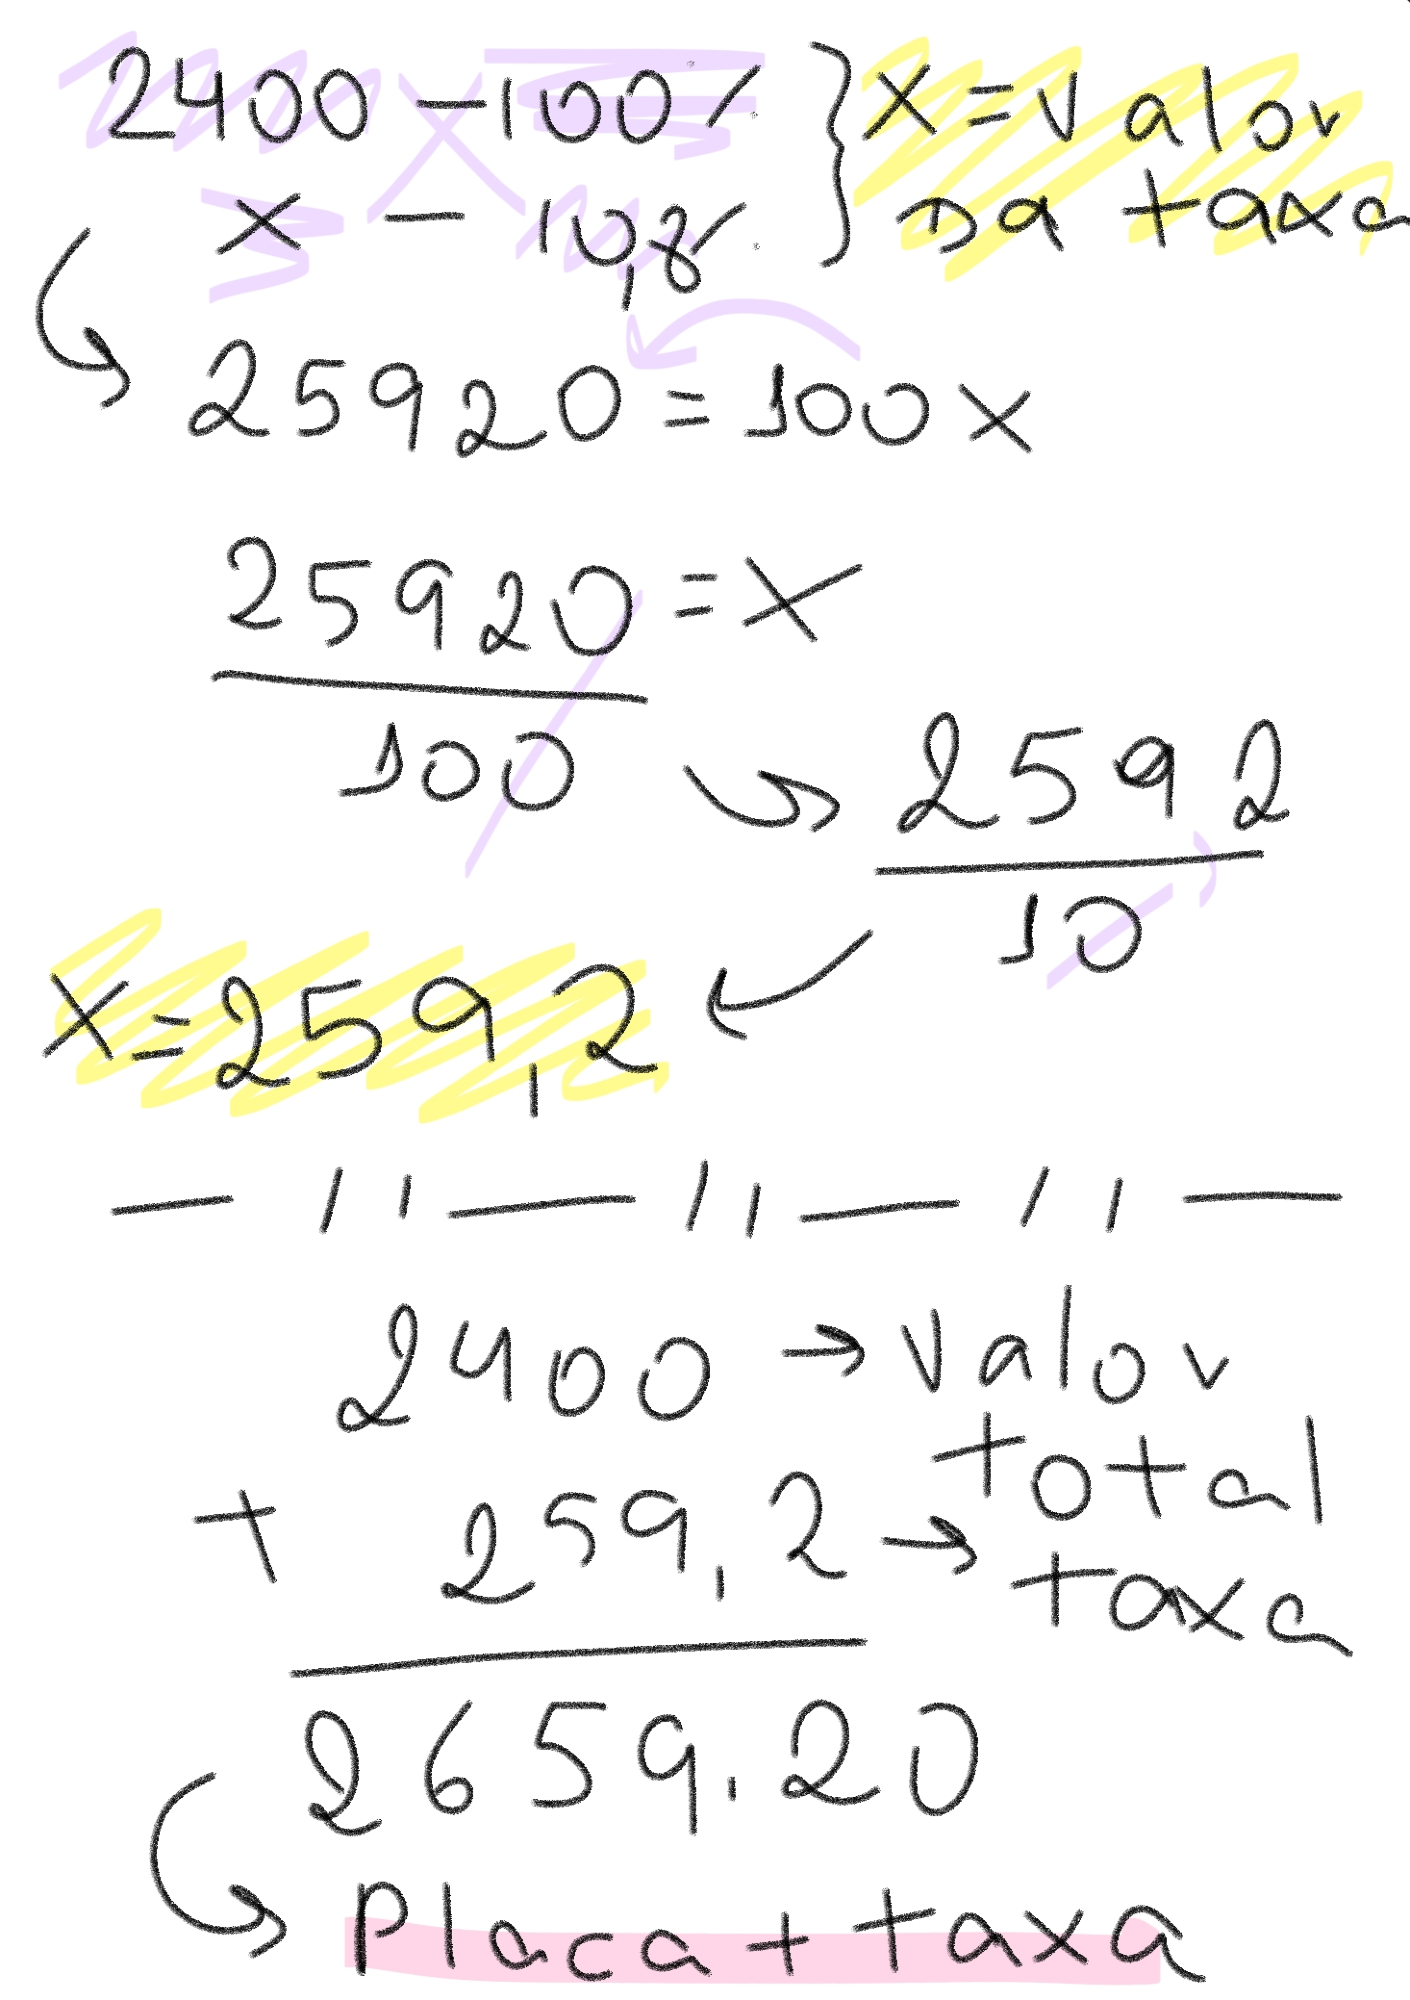 2400 — 100% } x = valor
x — 10,8% da taxa
25920 = 100x
25920 = x
100
2592
10
x = 259,2
— // — // — // —
2400 → valor
total
+ 259,2 → taxa
2659.20
Placa + taxa